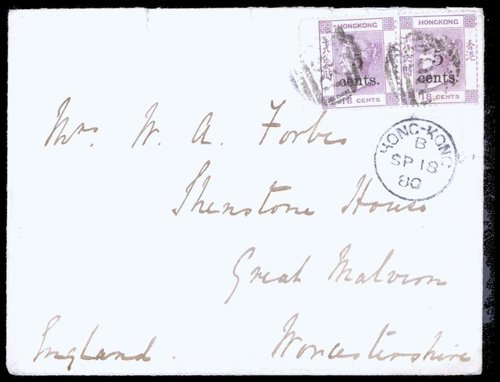 HONGKONG HONGKONG
5 cents. 5 cents.
18 CENTS 18 CENTS
香港
HONG-KONG
B
SP 18
80
Mrs W. A. Forbes
Shenstone House
Great Malvern
Worcestershire
England.